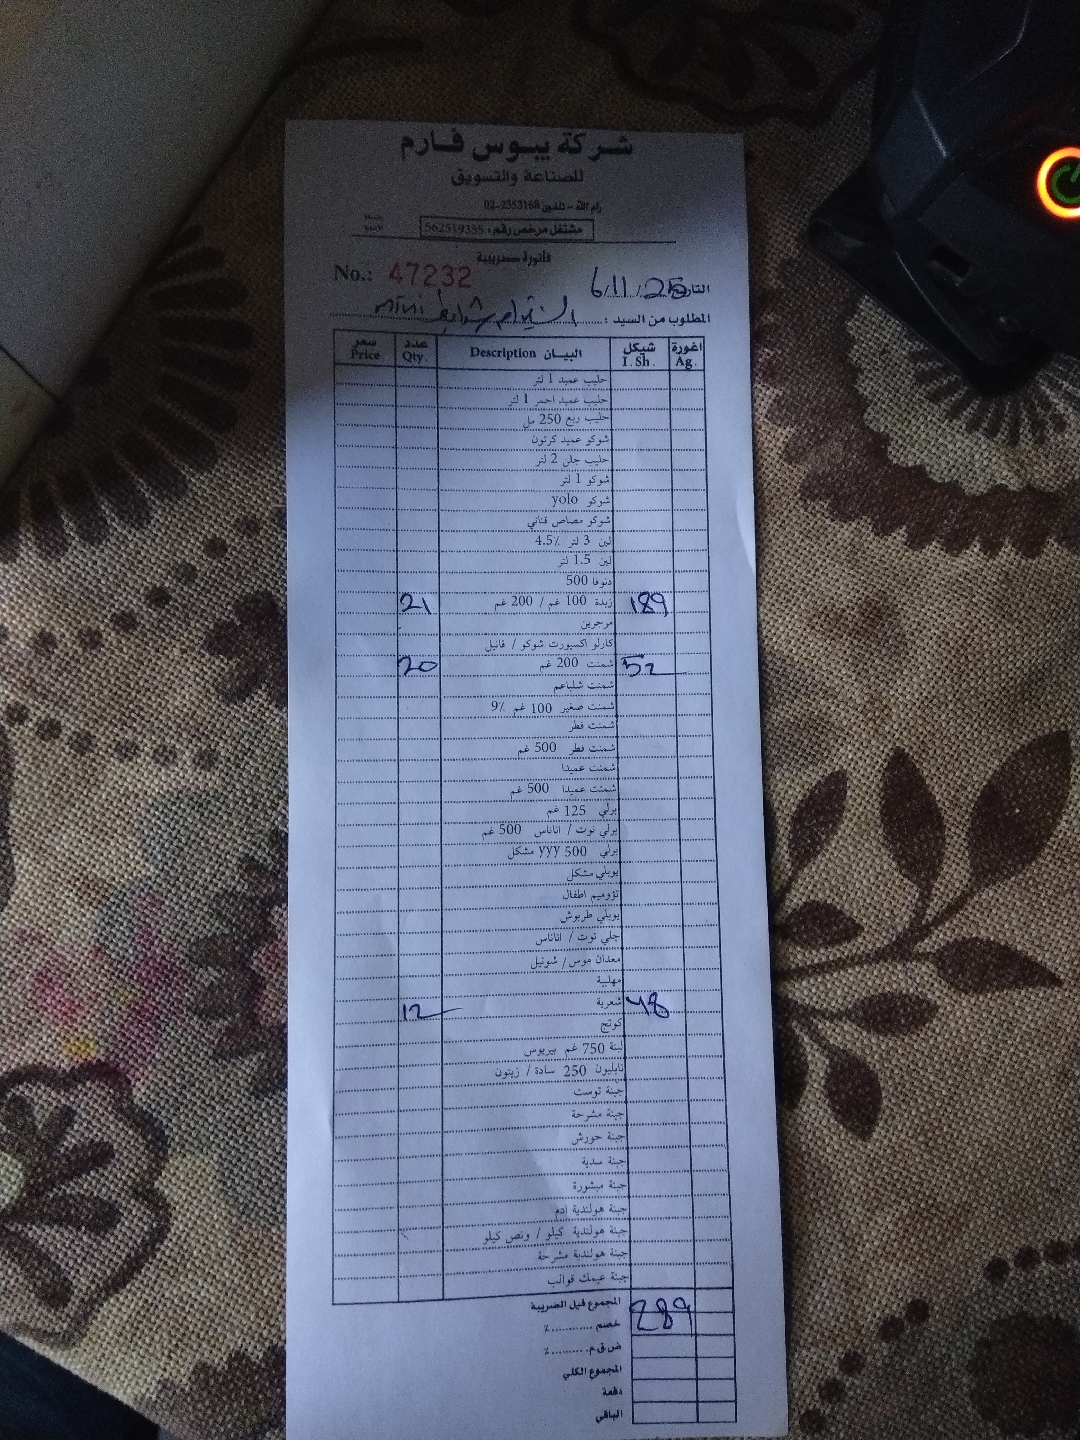 شركة يبوس فارم
للصناعة والتسويق
رام الله - تلفون 02-2353168
مشتغل مرخص رقم: 562519355
فاتورة ضريبية
No.: 47232
التاريخ 6/11/25
المطلوب من السيد :
سعر Price عدد Qty. البيـان Description شيكل I. Sh. اغورة Ag.
حليب عميد 1 لتر
حليب عميد احمر 1 لتر
حليب ربع 250 مل
شوكو عميد كرتون
حليب جلن 2 لتر
شوكو 1 لتر
شوكو yolo
شوكو مصاص قناني
لبن 3 لتر 4.5٪
لبن 1.5 لتر
دنوفا 500
21 زبدة 100 غم / 200 غم 189
مرجرين
كارلو اكسبورت شوكو / فانيل
20 شمنت 200 غم 52
شمنت شلباعم
شمنت صغير 100 غم 9٪
شمنت فطر
شمنت فطر 500 غم
شمنت عميدا
شمنت عميدا 500 غم
برلي 125 غم
برلي توت / اناناس 500 غم
برلي 500 yyy مشكل
يوبلي مشكل
تؤوميم اطفال
يوبلي طربوش
جلي توت / اناناس
معدان موس / شونيل
مهلبية
12 شعرية 48
كوتج
لبنة 750 غم بيريوس
نابليون 250 سادة / زيتون
جبنة توست
جبنة مشرحة
جبنة حورش
جبنة سدية
جبنة مبشورة
جبنة هولندية ادم
جبنة هولندية كيلو / ونص كيلو
جبنة هولندية مشرحة
جبنة عيمك قوالب
المجموع قبل الضريبة 289
خصم ........... ٪
ض.ق.م. ......... ٪
المجموع الكلي
دفعة
الباقي